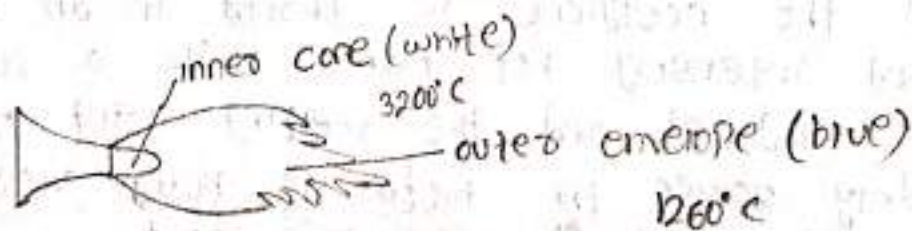 inner core (white)
3200°C
outer envelope (blue)
1260°C